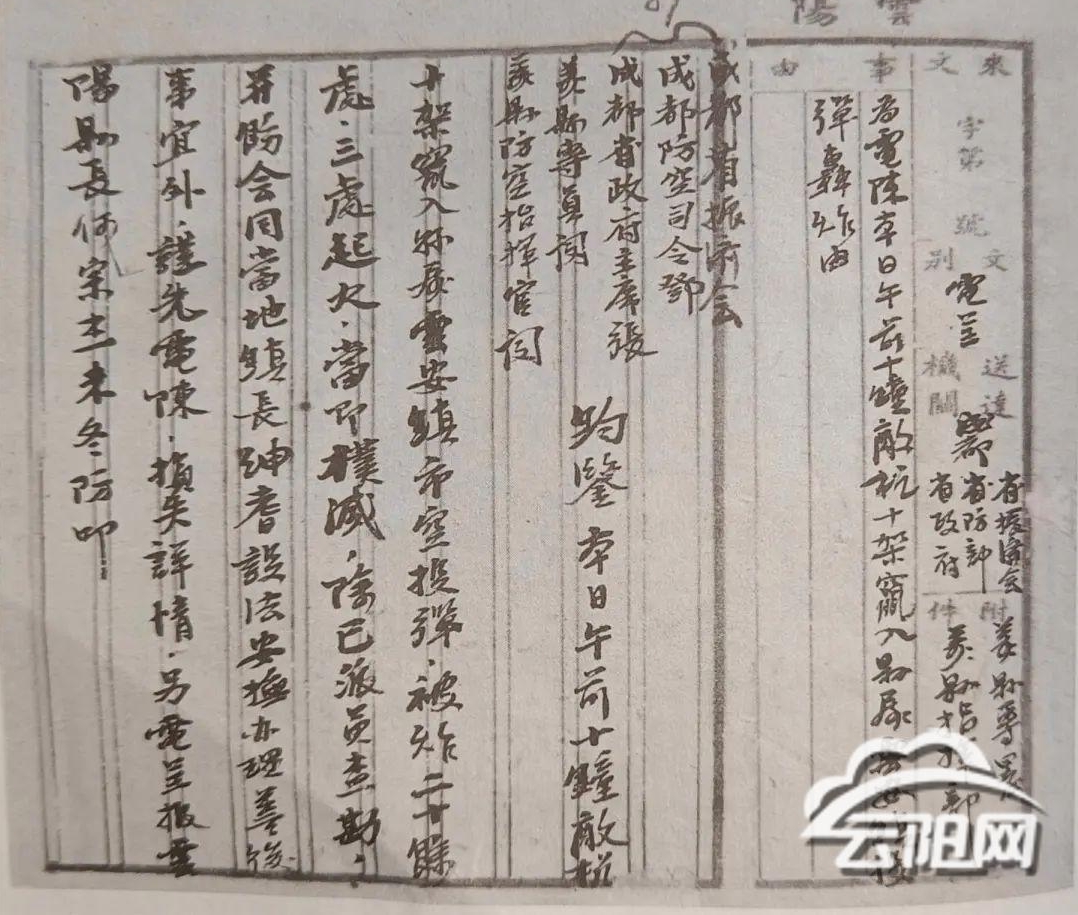 雲陽
來文 字第 號
文別 電呈
送達機關 成都 省振濟会 省防部 省政府
附件 萬縣專署 萬縣指揮部
事由
為電陳本日午前十鐘敵杭十架竄入縣屬雲安鎮投
彈轟炸由
成都省振济会
成都防空司令鄧
成都省政府主席張
萬縣專員閔
萬縣防空指揮官閔
鈞鑒本日午前十鐘敵杭
十架竄入縣屬雲安鎮市空投彈、被炸二十餘
處、三處起火、當即撲滅、除已派員查勘、
并飭会同當地鎮長紳耆設法安撫办理善後
事宜外、謹先電陳、損失詳情、另電呈报雲
陽縣長何宗 未冬防叩
云阳网